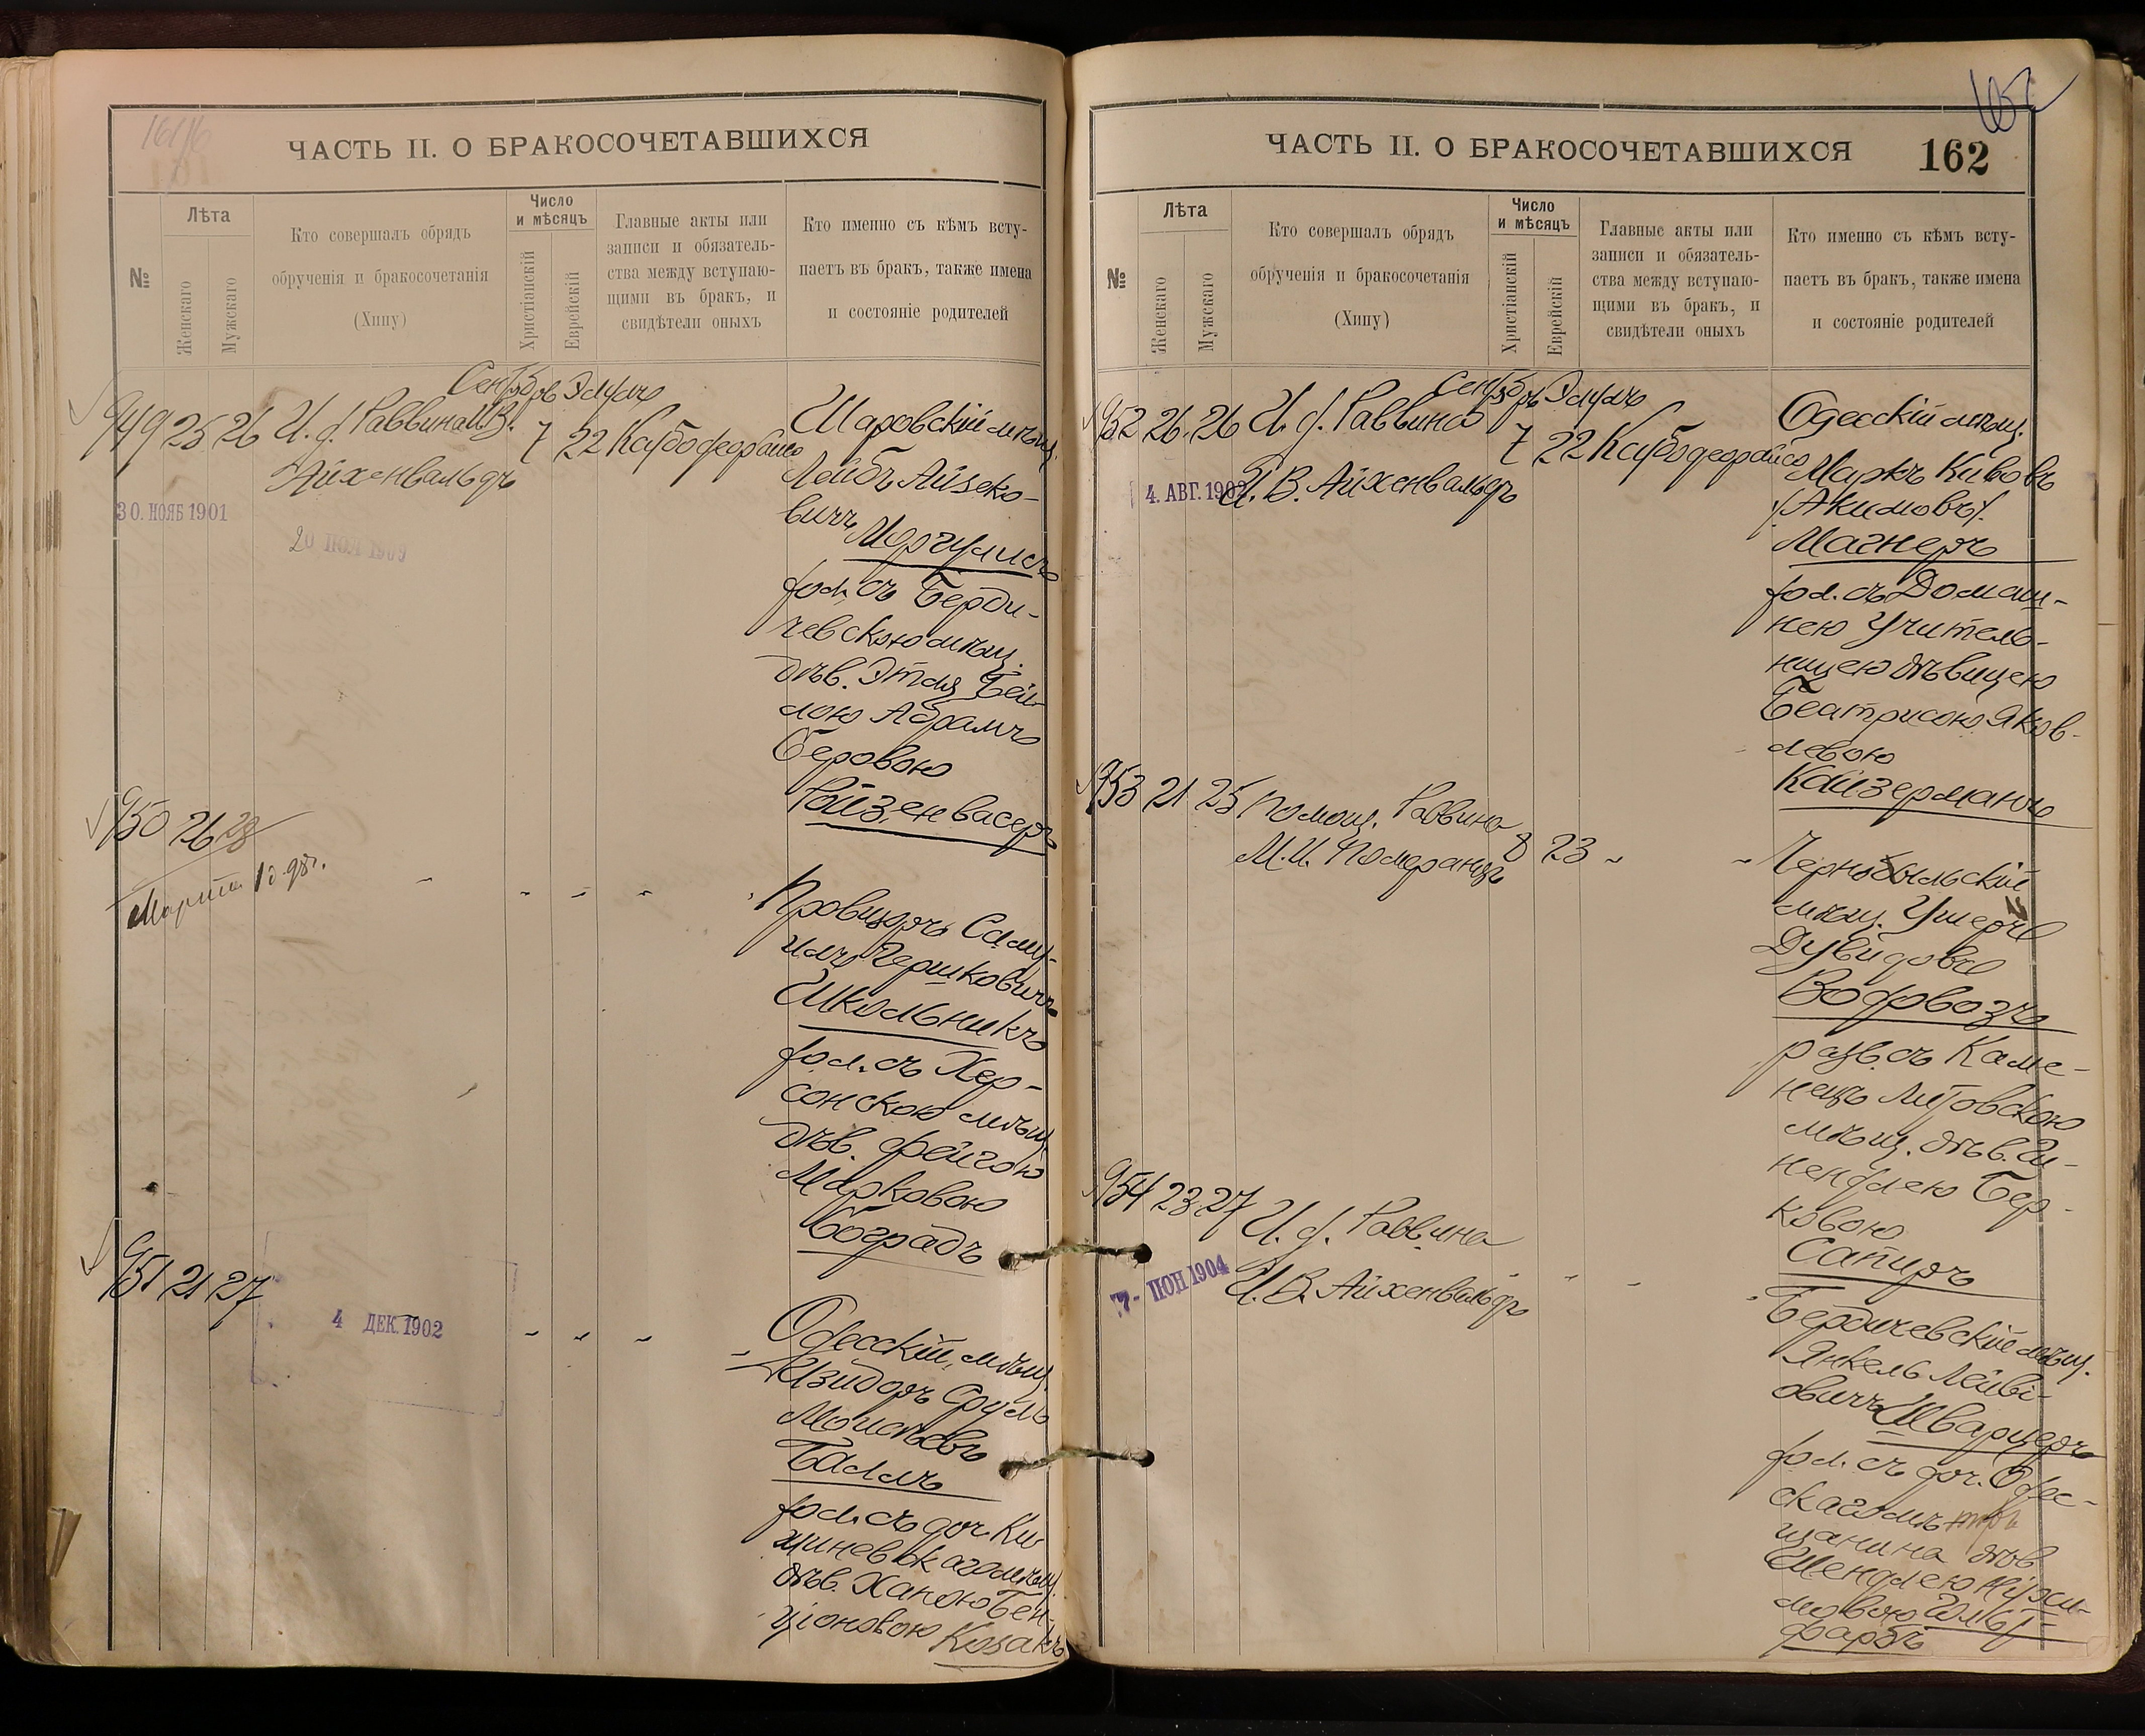 ЧАСТЬ II. О БРАКОСОЧЕТАВШИХСЯ
№
Лѣта
Женскаго
Мужскаго
Кто совершалъ обрядъ
обрученія и бракосочетанія
(Хипу)
Число
и мѣсяцъ
Христіанскій
Еврейскій
Главные акты или
записи и обязатель-
ства между вступаю-
щими въ бракъ, и
свидѣтели оныхъ
Кто именно съ кѣмъ всту-
паетъ въ бракъ, также имена
и состояніе родителей
Сентябрь Элулъ
949 25 26 И. д. Раввина И.В.
Айхенвальдъ
7 22
30. НОЯБ 1901
20 1909
Шаровскій мѣщ.
Лейбъ Айзеко-
вичъ Моргулисъ
хол. съ Берди-
чевскою мѣщ.
дѣв. Этля Бей-
лою Абрамъ
Беровою
Ройзенвасеръ
950 26 28
Марта
Провизоръ Саму-
илъ Гершковичъ
Школьникъ
хол. съ Хер-
сонскою мѣщ.
дѣв. Фейгою
Марковою
Боградъ
951 21 27
4 ДЕК. 1902
Одесскій мѣщ.
Изидоръ Сруль
Моисѣевъ
Балъ
хол. съ доч. Ки-
шиневскаго мѣщ.
дѣв. Ханою Бен-
ціоновою Козакъ
ЧАСТЬ II. О БРАКОСОЧЕТАВШИХСЯ
162
№
Лѣта
Женскаго
Мужскаго
Кто совершалъ обрядъ
обрученія и бракосочетанія
(Хипу)
Число
и мѣсяцъ
Христіанскій
Еврейскій
Главные акты или
записи и обязатель-
ства между вступаю-
щими въ бракъ, и
свидѣтели оныхъ
Кто именно съ кѣмъ всту-
паетъ въ бракъ, также имена
и состояніе родителей
Сентябрь Элулъ
952 26 26 И. д. Раввина
И. В. Айхенвальдъ
7 22
4. АВГ. 1902
Одесскій мѣщ.
Маркъ Кивовъ
/Акимовъ/
Магнеръ
хол. съ Домаш-
нею Учитель-
ницею дѣвицею
Беатрисою Яков-
левою
Кайзерманъ
953 21 25 Помощ. Раввина
М. И. Померанцъ
8 23
Чернобыльскій
мѣщ. Ушеръ
Дувидовъ
Водовозъ
разв. съ Каме-
нецъ Литовскою
мѣщ. дѣв. Ги-
нендлею Бер-
ковою
Сапиръ
954 23 27 И. д. Раввина
И. В. Айхенвальдъ
7- ІЮН 1904
Бердичевскій мѣщ.
Янкель Лейви-
овичъ Шварцеръ
хол. съ доч. Одес-
скаго мѣ-
щанина дѣв.
Шендлею
Гольд-
фарбъ